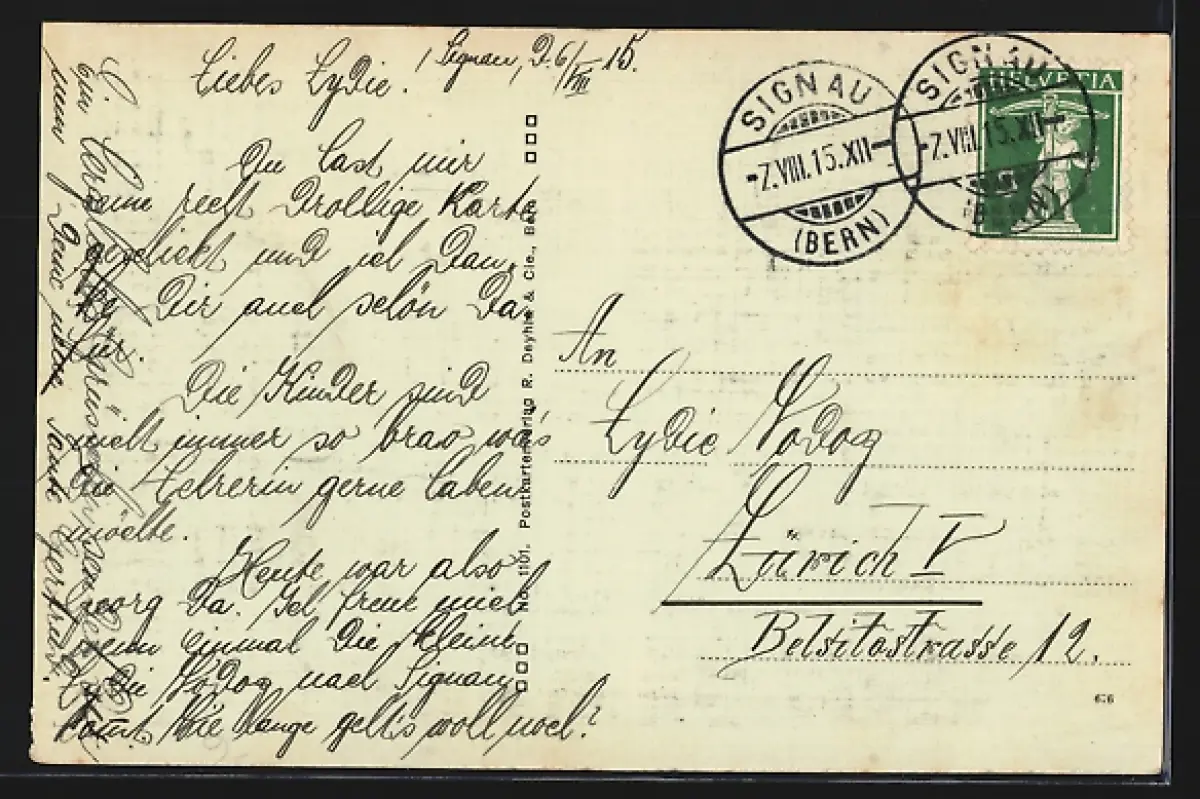 Signau, D. 6/VIII 15.
Liebes Lydie!
Du hast mir
eine recht drollige Karte
geschickt und ich dan-
ke Dir auch schön da-
für.
Die Kinder sind
nicht immer so brav wa's
die Lehrerin gerne haben
möchte.
Heute war also
da. Ich freue mich
wenn einmal die kleine
Lydie Nodog nach Signau
kommt. Wie lange geht's wohl noch?
Ein
nun Deine
Tante Gertrud.
No. 1101. Postkartenverlag R. Deyhle & Cie., Bern
SIGNAU
-7.VIII.15.XII-
(BERN)
SIGNAU
-7.VIII.15.XII-
(BERN)
HELVETIA
5
An
Lydie Nodog
Zürich V
Belsitostrasse 12.
676